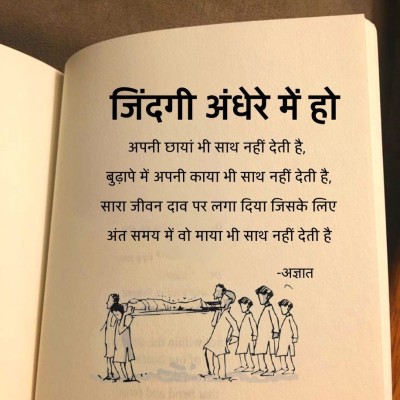 जिंदगी अंधेरे में हो
अपनी छायां भी साथ नहीं देती है,
बुढ़ापे में अपनी काया भी साथ नहीं देती है,
सारा जीवन दाव पर लगा दिया जिसके लिए
अंत समय में वो माया भी साथ नहीं देती है
-अज्ञात